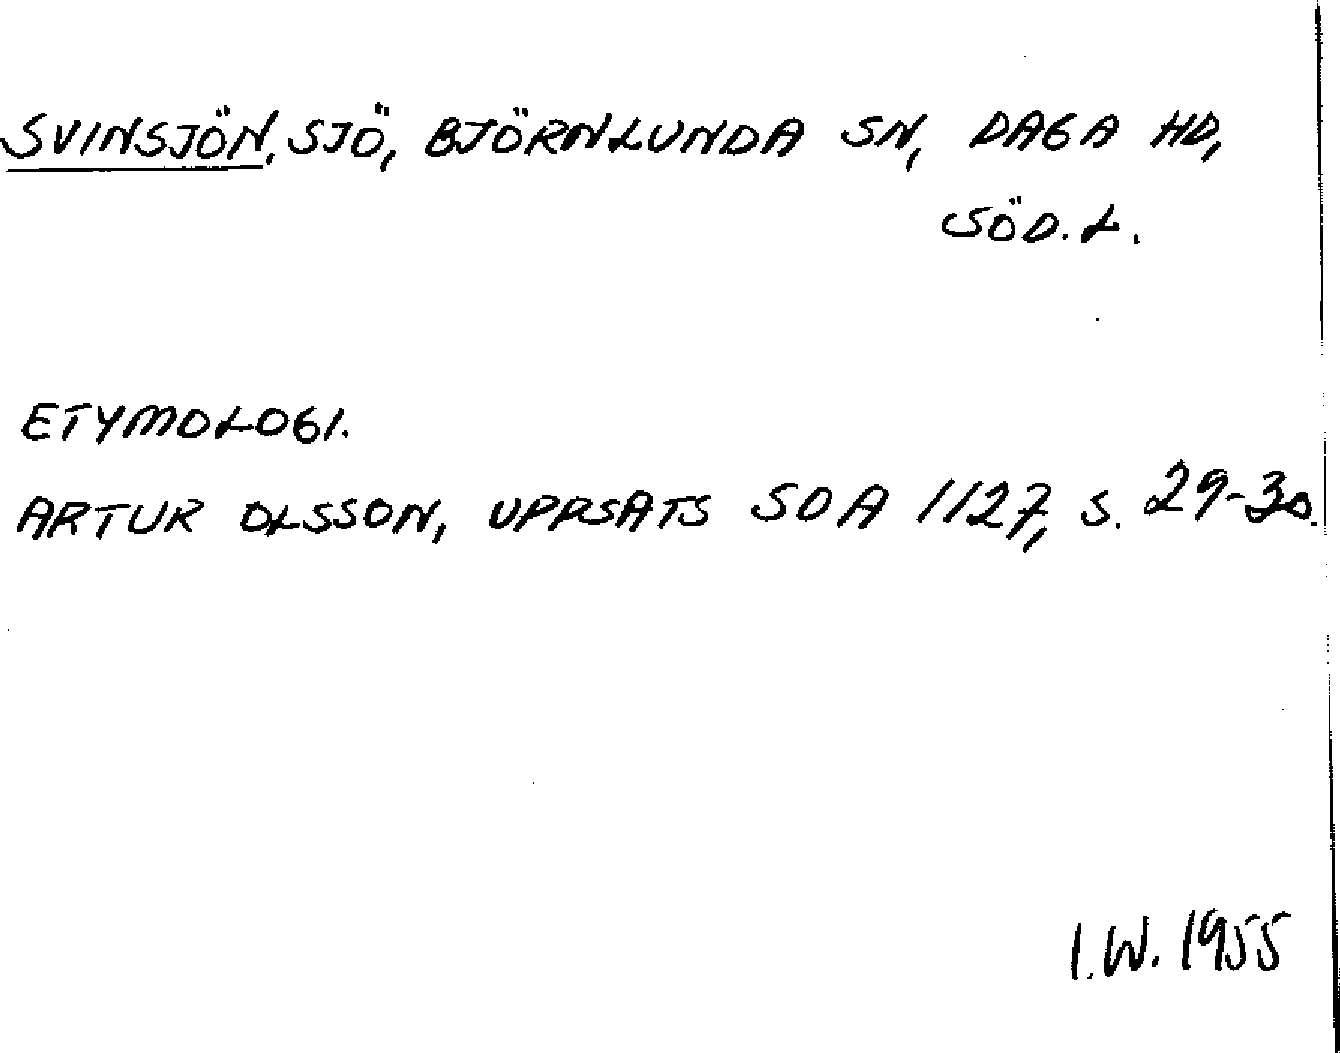 SVINSJÖN, SJÖ, BJÖRNLUNDA SN, DAGA HD,
SÖD. L.
ETYMOLOGI.
ARTUR OLSSON, UPPSATS SOA 1127, S. 29-30.
I.W. 1955